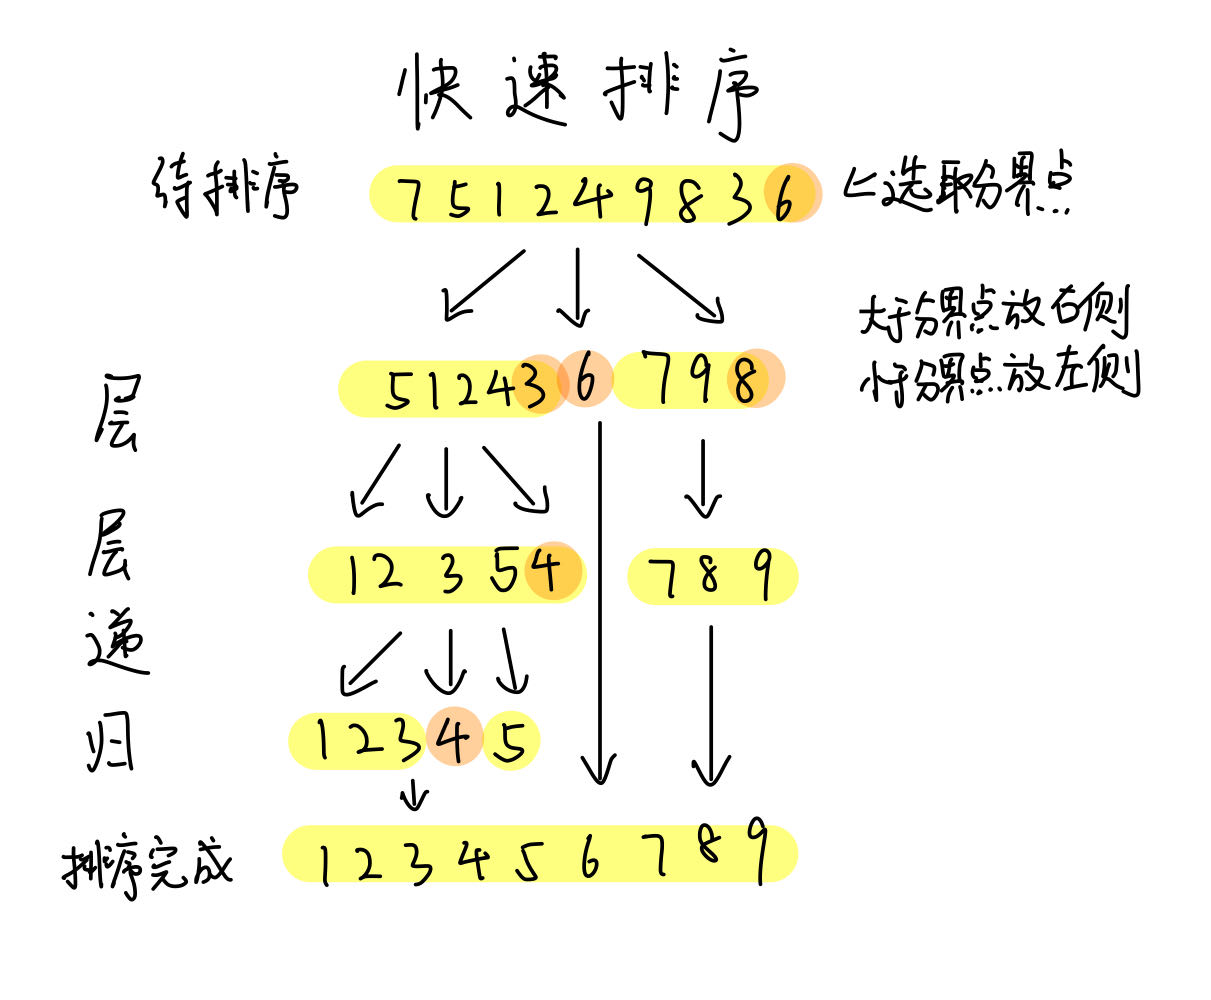 快速排序
待排序 7 5 1 2 4 9 8 3 6 ←选取分界点
大于分界点放右侧
小于分界点放左侧
5 1 2 4 3 6 7 9 8
1 2 3 5 4 7 8 9
1 2 3 4 5
层层递归
排序完成 1 2 3 4 5 6 7 8 9